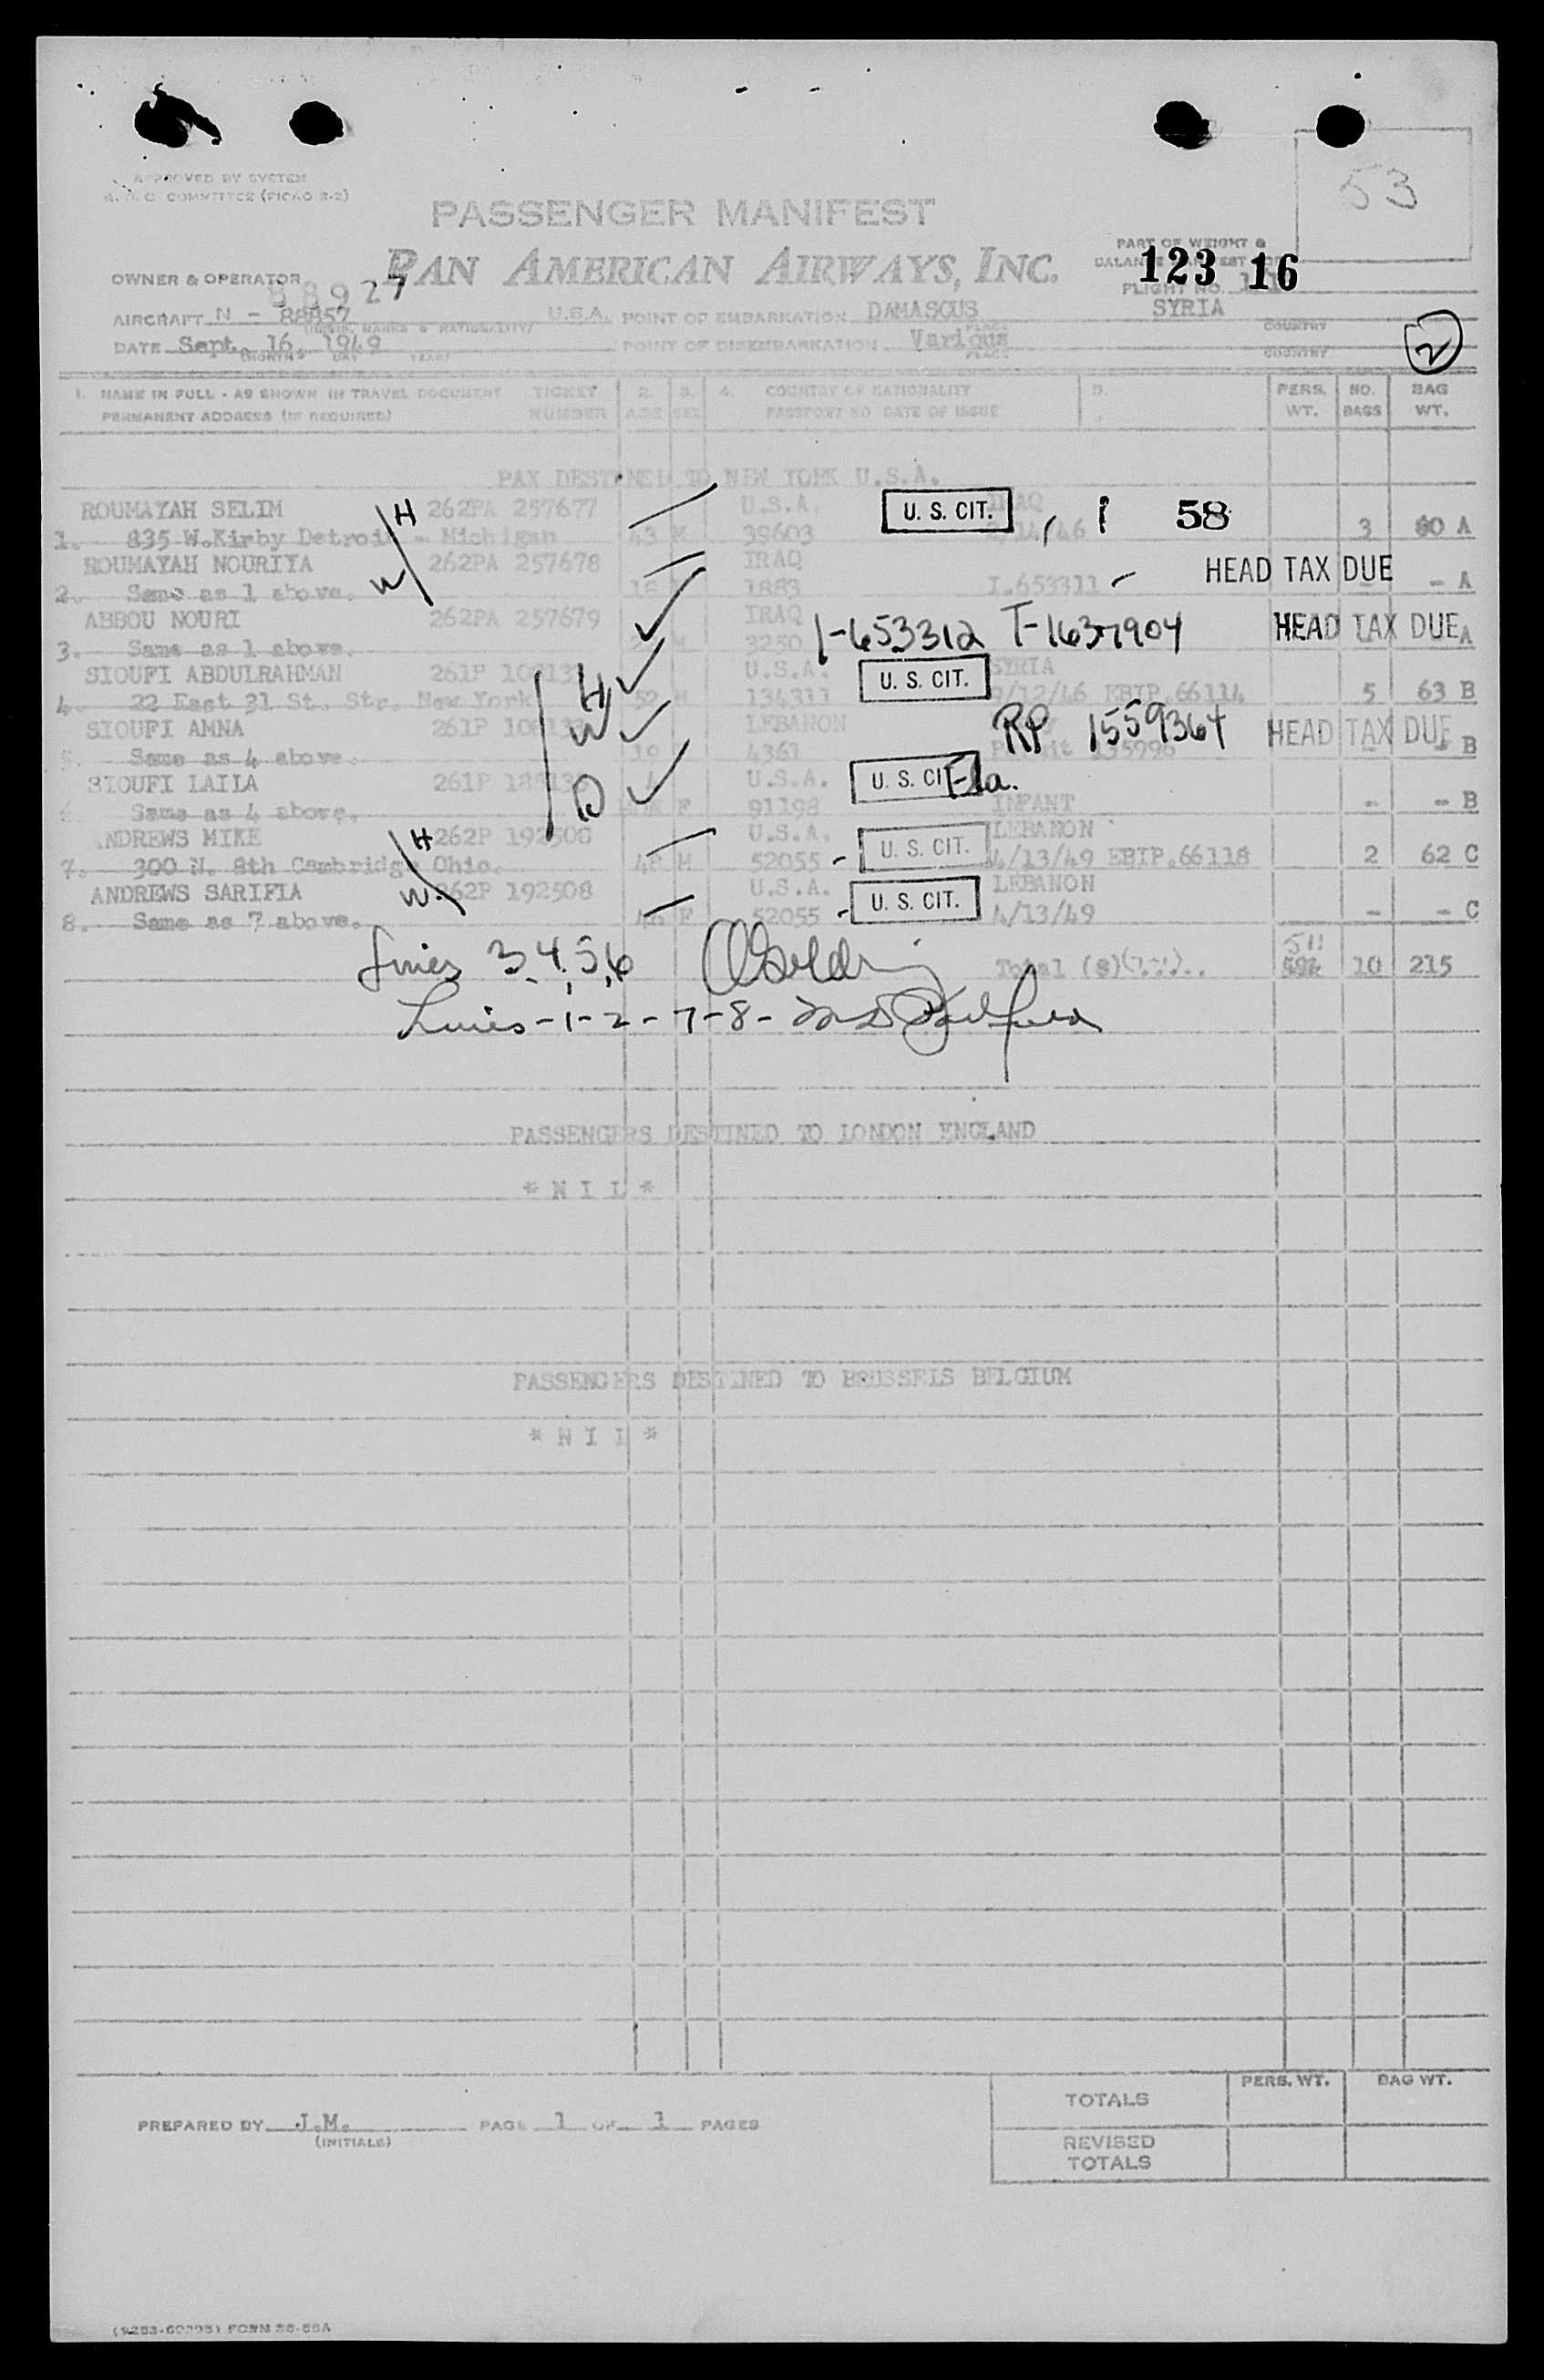 APPROVED BY SYSTEM
COMMITTEE (PICAO 2-2)
53
PASSENGER MANIFEST
PAN AMERICAN AIRWAYS, INC.
PART OF WEIGHT &
123 16
FLIGHT NO.
OWNER & OPERATOR
88927
AIRCRAFT N - 88857 U.S.A. POINT OF EMBARKATION DAMASCUS SYRIA
PLACE COUNTRY
DATE Sept. 16, 1949 POINT OF DISEMBARKATION Various
MONTH DAY YEAR PLACE COUNTRY
2
1. NAME IN FULL - AS SHOWN IN TRAVEL DOCUMENT TICKET 2. 3. 4. COUNTRY OF NATIONALITY 5. PERS. NO. BAG
PERMANENT ADDRESS (IF REQUIRED) NUMBER AGE SEX PASSPORT NO DATE OF ISSUE WT. BAGS WT.
PAX DESTINED TO NEW YORK U.S.A.
ROUMAYAH SELIM H 262PA 257677 U.S.A. U. S. CIT. IRAQ 1 58
1. 835 W.Kirby Detroit - Michigan 43 M 39603 /46 3 60 A
ROUMAYAH NOURIYA 262PA 257678 IRAQ HEAD TAX DUE
2. Same as 1 above. W 18 1883 I.653311 - - A
ABBOU NOURI 262PA 257679 IRAQ 1-653312 T-1637904 HEAD TAX DUE
3. Same as 1 above. M 3250 A
SIOUFI ABDULRAHMAN 261P U.S.A. U. S. CIT. SYRIA
4. 22 East 31 St. Str. New York H 52 M 134311 9/12/46 EBIP.66114 5 63 B
SIOUFI AMNA 261P W LEBANON RP 1559364 HEAD TAX DUE
5. Same as 4 above. 19 4361 - B
SIOUFI LAILA 261P D U.S.A. U. S. CIT.
6 Same as 4 above. F 91198 INFANT - - B
ANDREWS MIKE H 262P 192508 U.S.A. U. S. CIT. LEBANON
7. 300 N. 8th Cambridge Ohio. 48 M 52055 - 4/13/49 EBIP.66118 2 62 C
ANDREWS SARIFIA W. 262P 192508 U.S.A. U. S. CIT. LEBANON
8. Same as 7 above. 46 F 52055 - 4/13/49 - - C
Lines 3, 4, 5, 6 Total (8) 10 215
Lines-1-2-7-8-
PASSENGERS DESTINED TO LONDON ENGLAND
* N I L *
PASSENGERS DESTINED TO BRUSSELS BELGIUM
* N I L *
PERS. WT. BAG WT.
TOTALS
PREPARED BY J.M. PAGE 1 OF 1 PAGES
(INITIALS)
REVISED
TOTALS
FORM